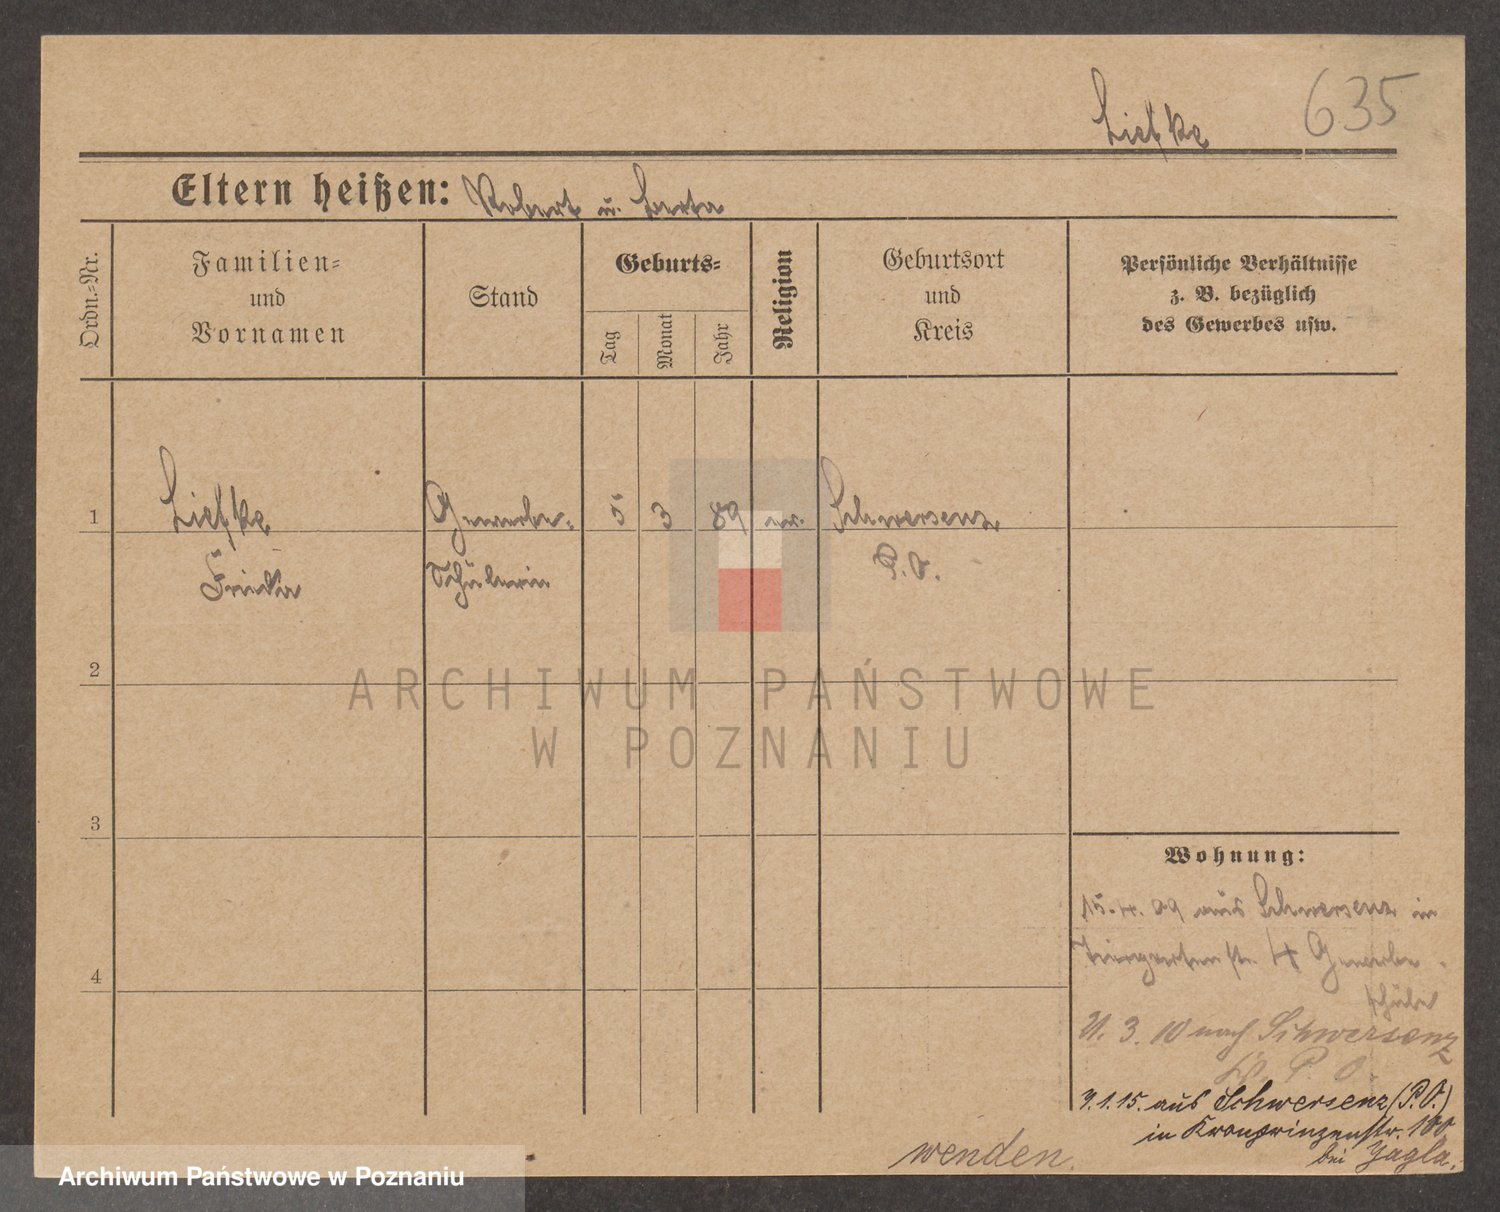 Liefke 635
Eltern heißen: Robert u. Berta
Ordn.-Nr.
Familien-
und
Vornamen
Stand
Geburts-
Tag
Monat
Jahr
Religion
Geburtsort
und
Kreis
Persönliche Verhältnisse
z. B. bezüglich
des Gewerbes usw.
1 Liefke Gewerbe- 5 3 89 ev. Schwersenz
Frieda Schülerin P. O.
2
3
4
ARCHIWUM PAŃSTWOWE
W POZNANIU
Wohnung:
15.4.09 aus Schwersenz in
Tiergartenstr. 4 Gewerbe-
schule
3. 10 nach Schwersenz
P. O.
aus Schwersenz (P.O.)
in Kronprinzenstr. 100
bei Jagla.
wenden.
Archiwum Państwowe w Poznaniu